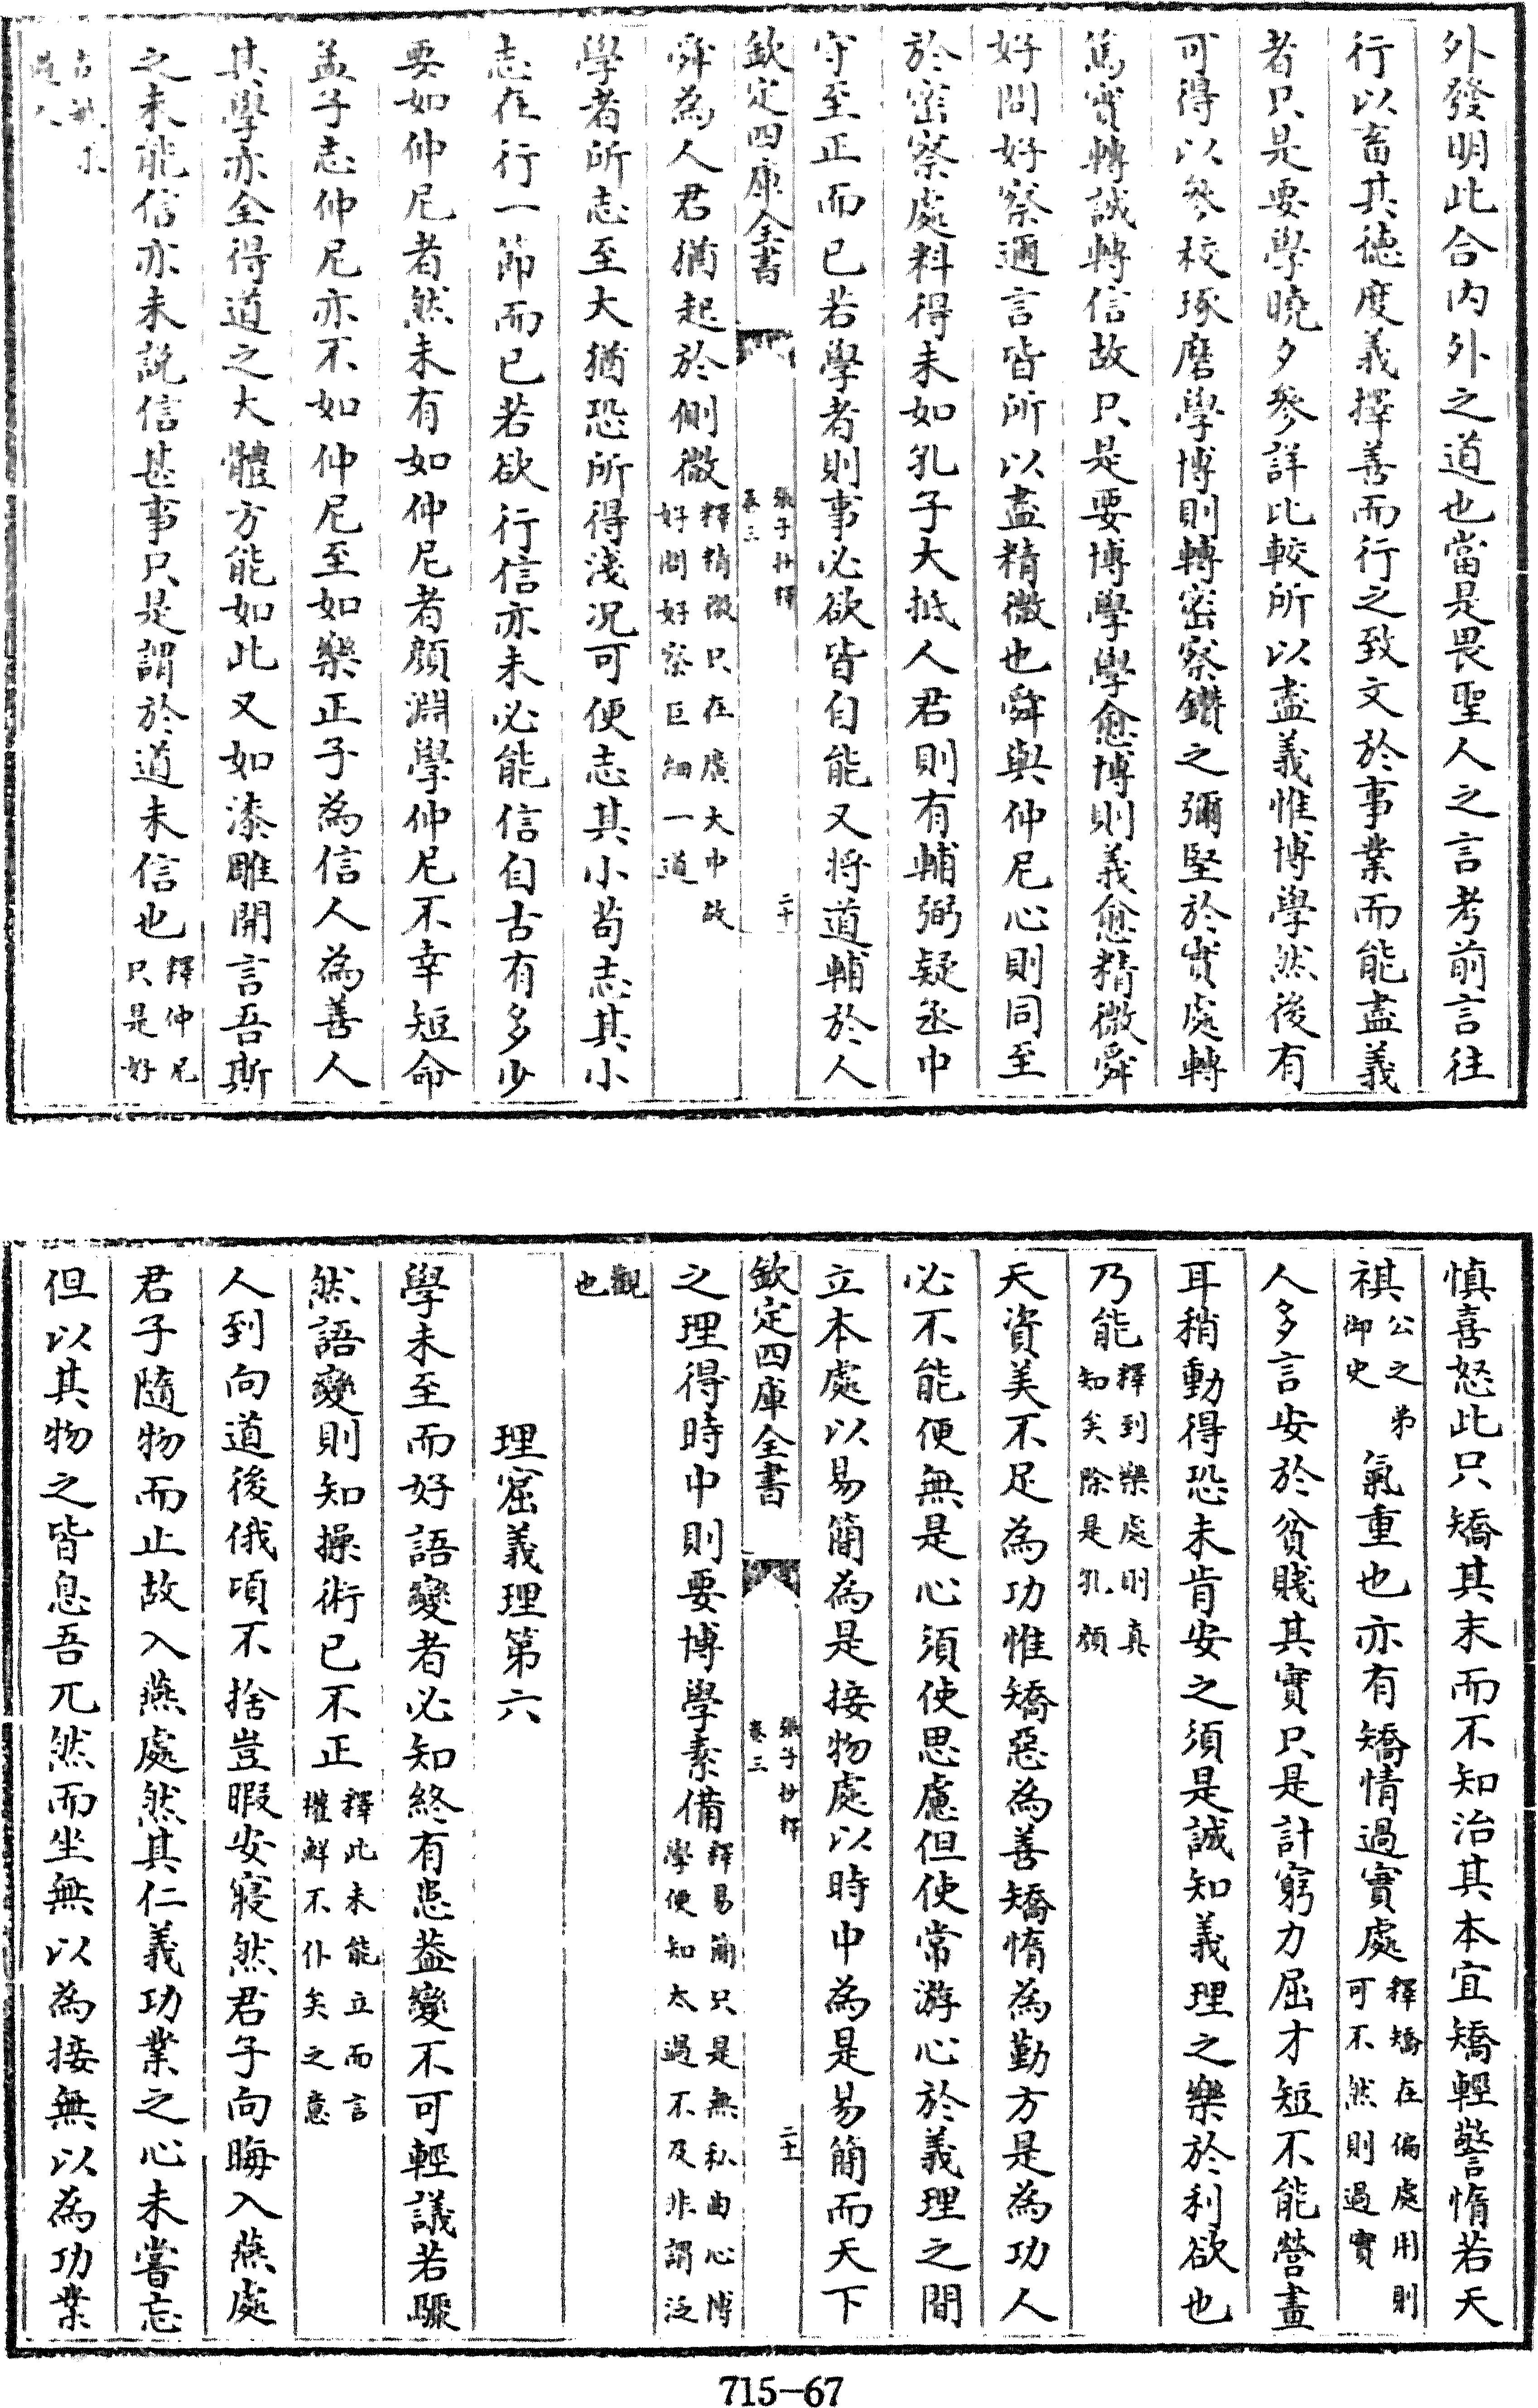 外發明此合内外之道也當是畏聖人之言考前言往
行以畜其徳度義擇善而行之致文於事業而能盡義
者只是要學曉夕參詳比較所以盡義惟博學然後有
可得以參校琢磨學博則轉密察鑽之彌堅於實處轉
篤實轉誠轉信故只是要博學學愈博則義愈精微舜
好問好察邇言皆所以盡精微也舜與仲尼心則同至
於密察處料得未如孔子大抵人君則有輔弼疑丞中
守至正而已若學者則事必欲皆自能又将道輔於人
欽定四庫全書
張子抄釋
卷三
二十
舜為人君猶起於側微釋精微只在廣大中故
好問好察巨細一道
學者所志至大猶恐所得淺况可便志其小茍志其小
志在行一節而已若欲行信亦未必能信自古有多少
要如仲尼者然未有如仲尼者顔淵學仲尼不幸短命
孟子志仲尼亦不如仲尼至如樂正子為信人為善人
其學亦全得道之大體方能如此又如漆雕開言吾斯
之未能信亦未説信甚事只是謂於道未信也釋仲尼
只是好
古敏求
過人
慎喜怒此只矯其末而不知治其本宜矯輕警惰若天
祺公之弟
御史
氣重也亦有矯情過實處釋矯在偏處用則
可不然則過實
人多言安於貧賤其實只是計窮力屈才短不能營畫
耳稍動得恐未肯安之須是誠知義理之樂於利欲也
乃能釋到樂處則真
知矣除是孔顔
天資美不足為功惟矯惡為善矯惰為勤方是為功人
必不能便無是心須使思慮但使常游心於義理之間
立本處以易簡為是接物處以時中為是易簡而天下
欽定四庫全書
張子抄釋
卷三
二十一
之理得時中則要博學素備釋易簡只是無私曲心博
學便知太過不及非謂泛
觀
也
理窟義理第六
學未至而好語變者必知終有患葢變不可輕議若驟
然語變則知操術已不正釋此未能立而言
權鮮不仆矣之意
人到向道後俄頃不捨豈暇安寢然君子向晦入燕處
君子隨物而止故入燕處然其仁義功業之心未嘗忘
但以其物之皆息吾兀然而坐無以為接無以為功業
715-67